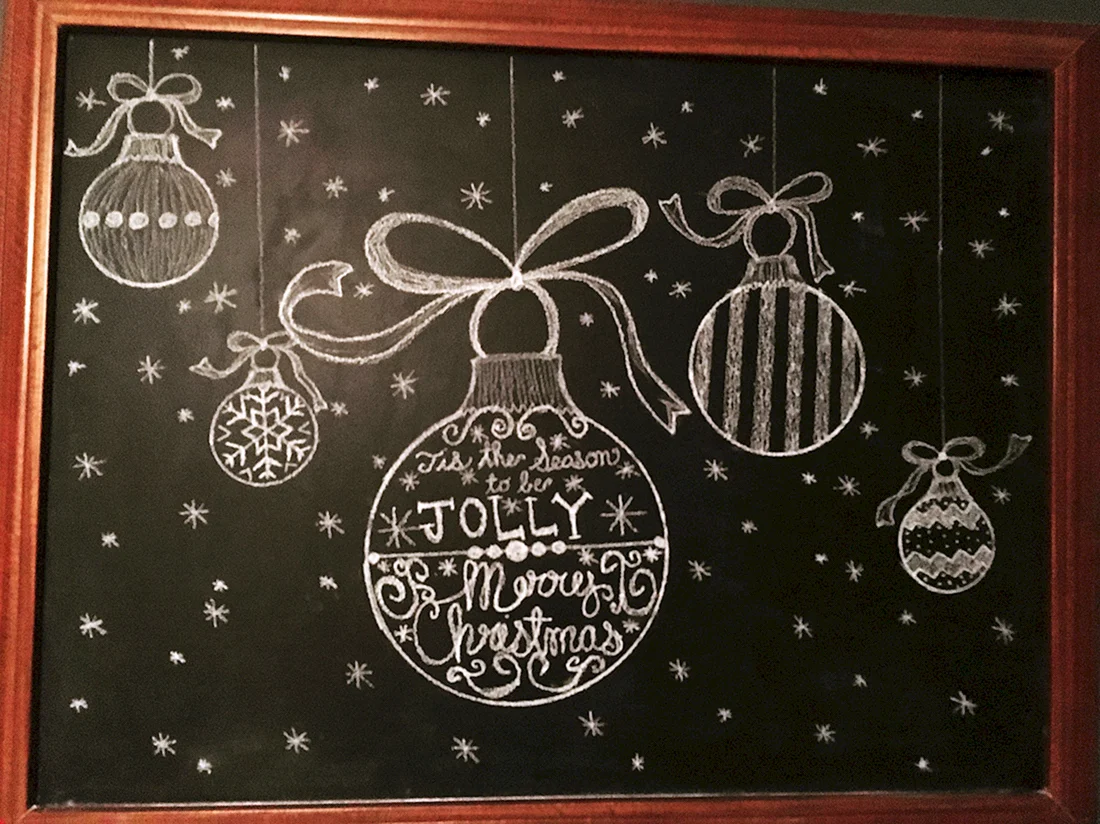 'Tis the Season
to be
JOLLY
Merry
Christmas